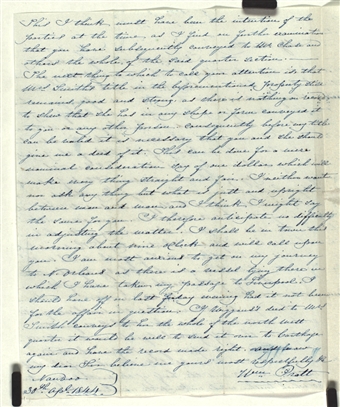 This I think must have been the intention of the
parties at the time, as I find on further examination
that you have subsequently conveyed to Mr. Chase and
others the whole of the said quarter section.
The next thing to which to call your attention is that
Mrs Smith's title in the beforementioned property still
remained good and strong, as there is nothing on record
to show that she has in any shape or form conveyed it
to you or any other person. Consequently before my title
can be valid it is necessary that you and she should
give me a deed of it. This can be done for a mere
nominal consideration say of one dollar which will
make every thing straight and fair. I neither want
nor ask any thing but what is just and upright
between man and man and I think I might say
the same for you. I therefore anticipate no difficulty
in adjusting the matter. I shall be in town this
morning about nine o'clock and will call upon
you. I am most anxious to get on my journey
to N. Orleans as there is a vessel lying there in
which I have taken my passage to Liverpool. I
should have off in last Friday evening had it not been
for the affair in question. If Haggard's deed to Mrs
Smith conveys to her the whole of the north west
quarter it would be well to send it over to Carthage
again and have the record made right.
my dear Sir believe me yours most respectfully &c
Nauvoo
30th Apl. 1844. Wm. Pratt